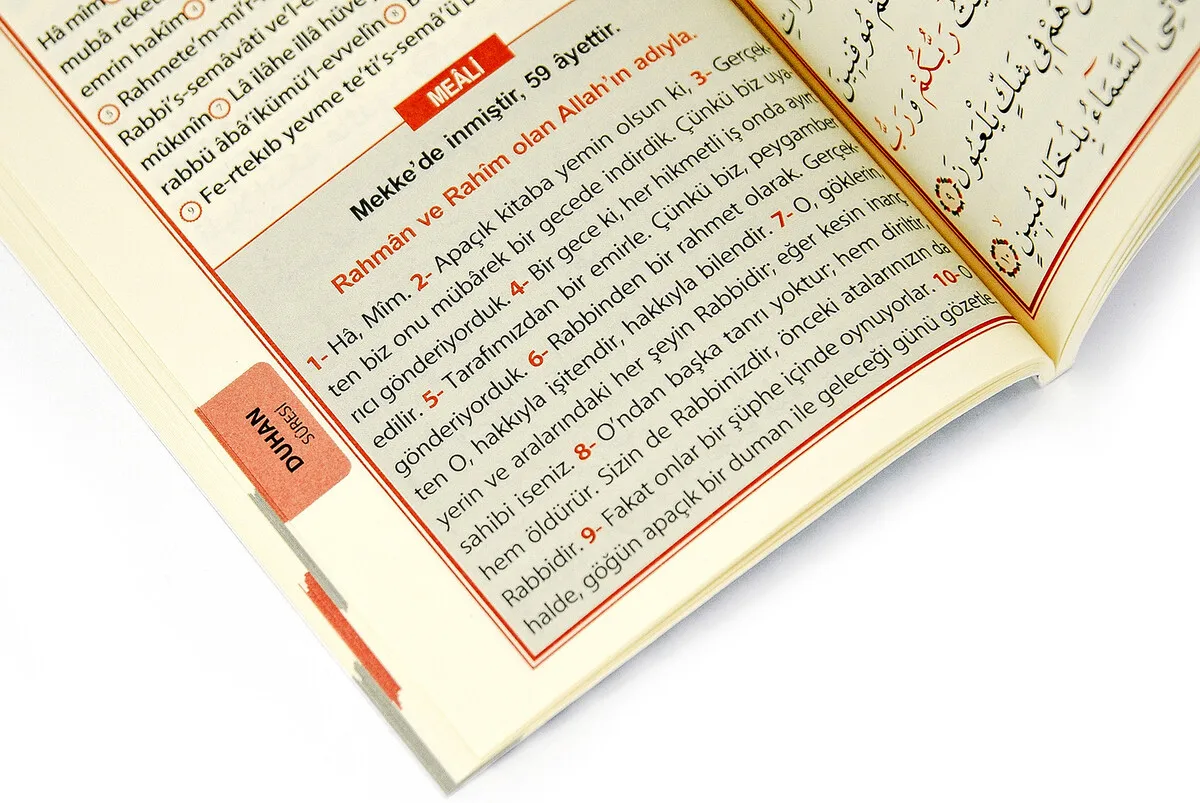 Hâ mîm
mubâ reket
emrin hakîm 4
5 Rahmete'm-mi'r-
Rabbi's-semâvâti ve'l-e
mûkınîn 7 Lâ ilâhe illâ hüve
rabbü âbâ'ikümü'l-evvelîn 8
9 Fe-rtekıb yevme te'ti's-semâ'ü b
MEÂLİ
Mekke'de inmiştir, 59 âyettir.
Rahmân ve Rahîm olan Allah'ın adıyla.
1- Hâ, Mîm. 2- Apaçık kitaba yemin olsun ki, 3- Gerçek-
ten biz onu mübârek bir gecede indirdik. Çünkü biz uya-
rıcı gönderiyorduk. 4- Bir gece ki, her hikmetli iş onda ayırt
edilir. 5- Tarafımızdan bir emirle. Çünkü biz, peygamber
gönderiyorduk. 6- Rabbinden bir rahmet olarak. Gerçek-
ten O, hakkıyla işitendir, hakkıyla bilendir. 7- O, göklerin,
yerin ve aralarındaki her şeyin Rabbidir; eğer kesin inanç
sahibi iseniz. 8- O'ndan başka tanrı yoktur; hem diriltir,
hem öldürür. Sizin de Rabbinizdir, önceki atalarınızın da
Rabbidir. 9- Fakat onlar bir şüphe içinde oynuyorlar. 10- O
halde, göğün apaçık bir duman ile geleceği günü gözetle
DUHAN
SÛRESİ
مُوقِنِينَ
رَبُّكُمْ وَرَبُّ
هُمْ فِي شَكٍّ يَلْعَبُونَ ٩
السَّمَاءُ بِدُخَانٍ مُبِينٍ ١٠